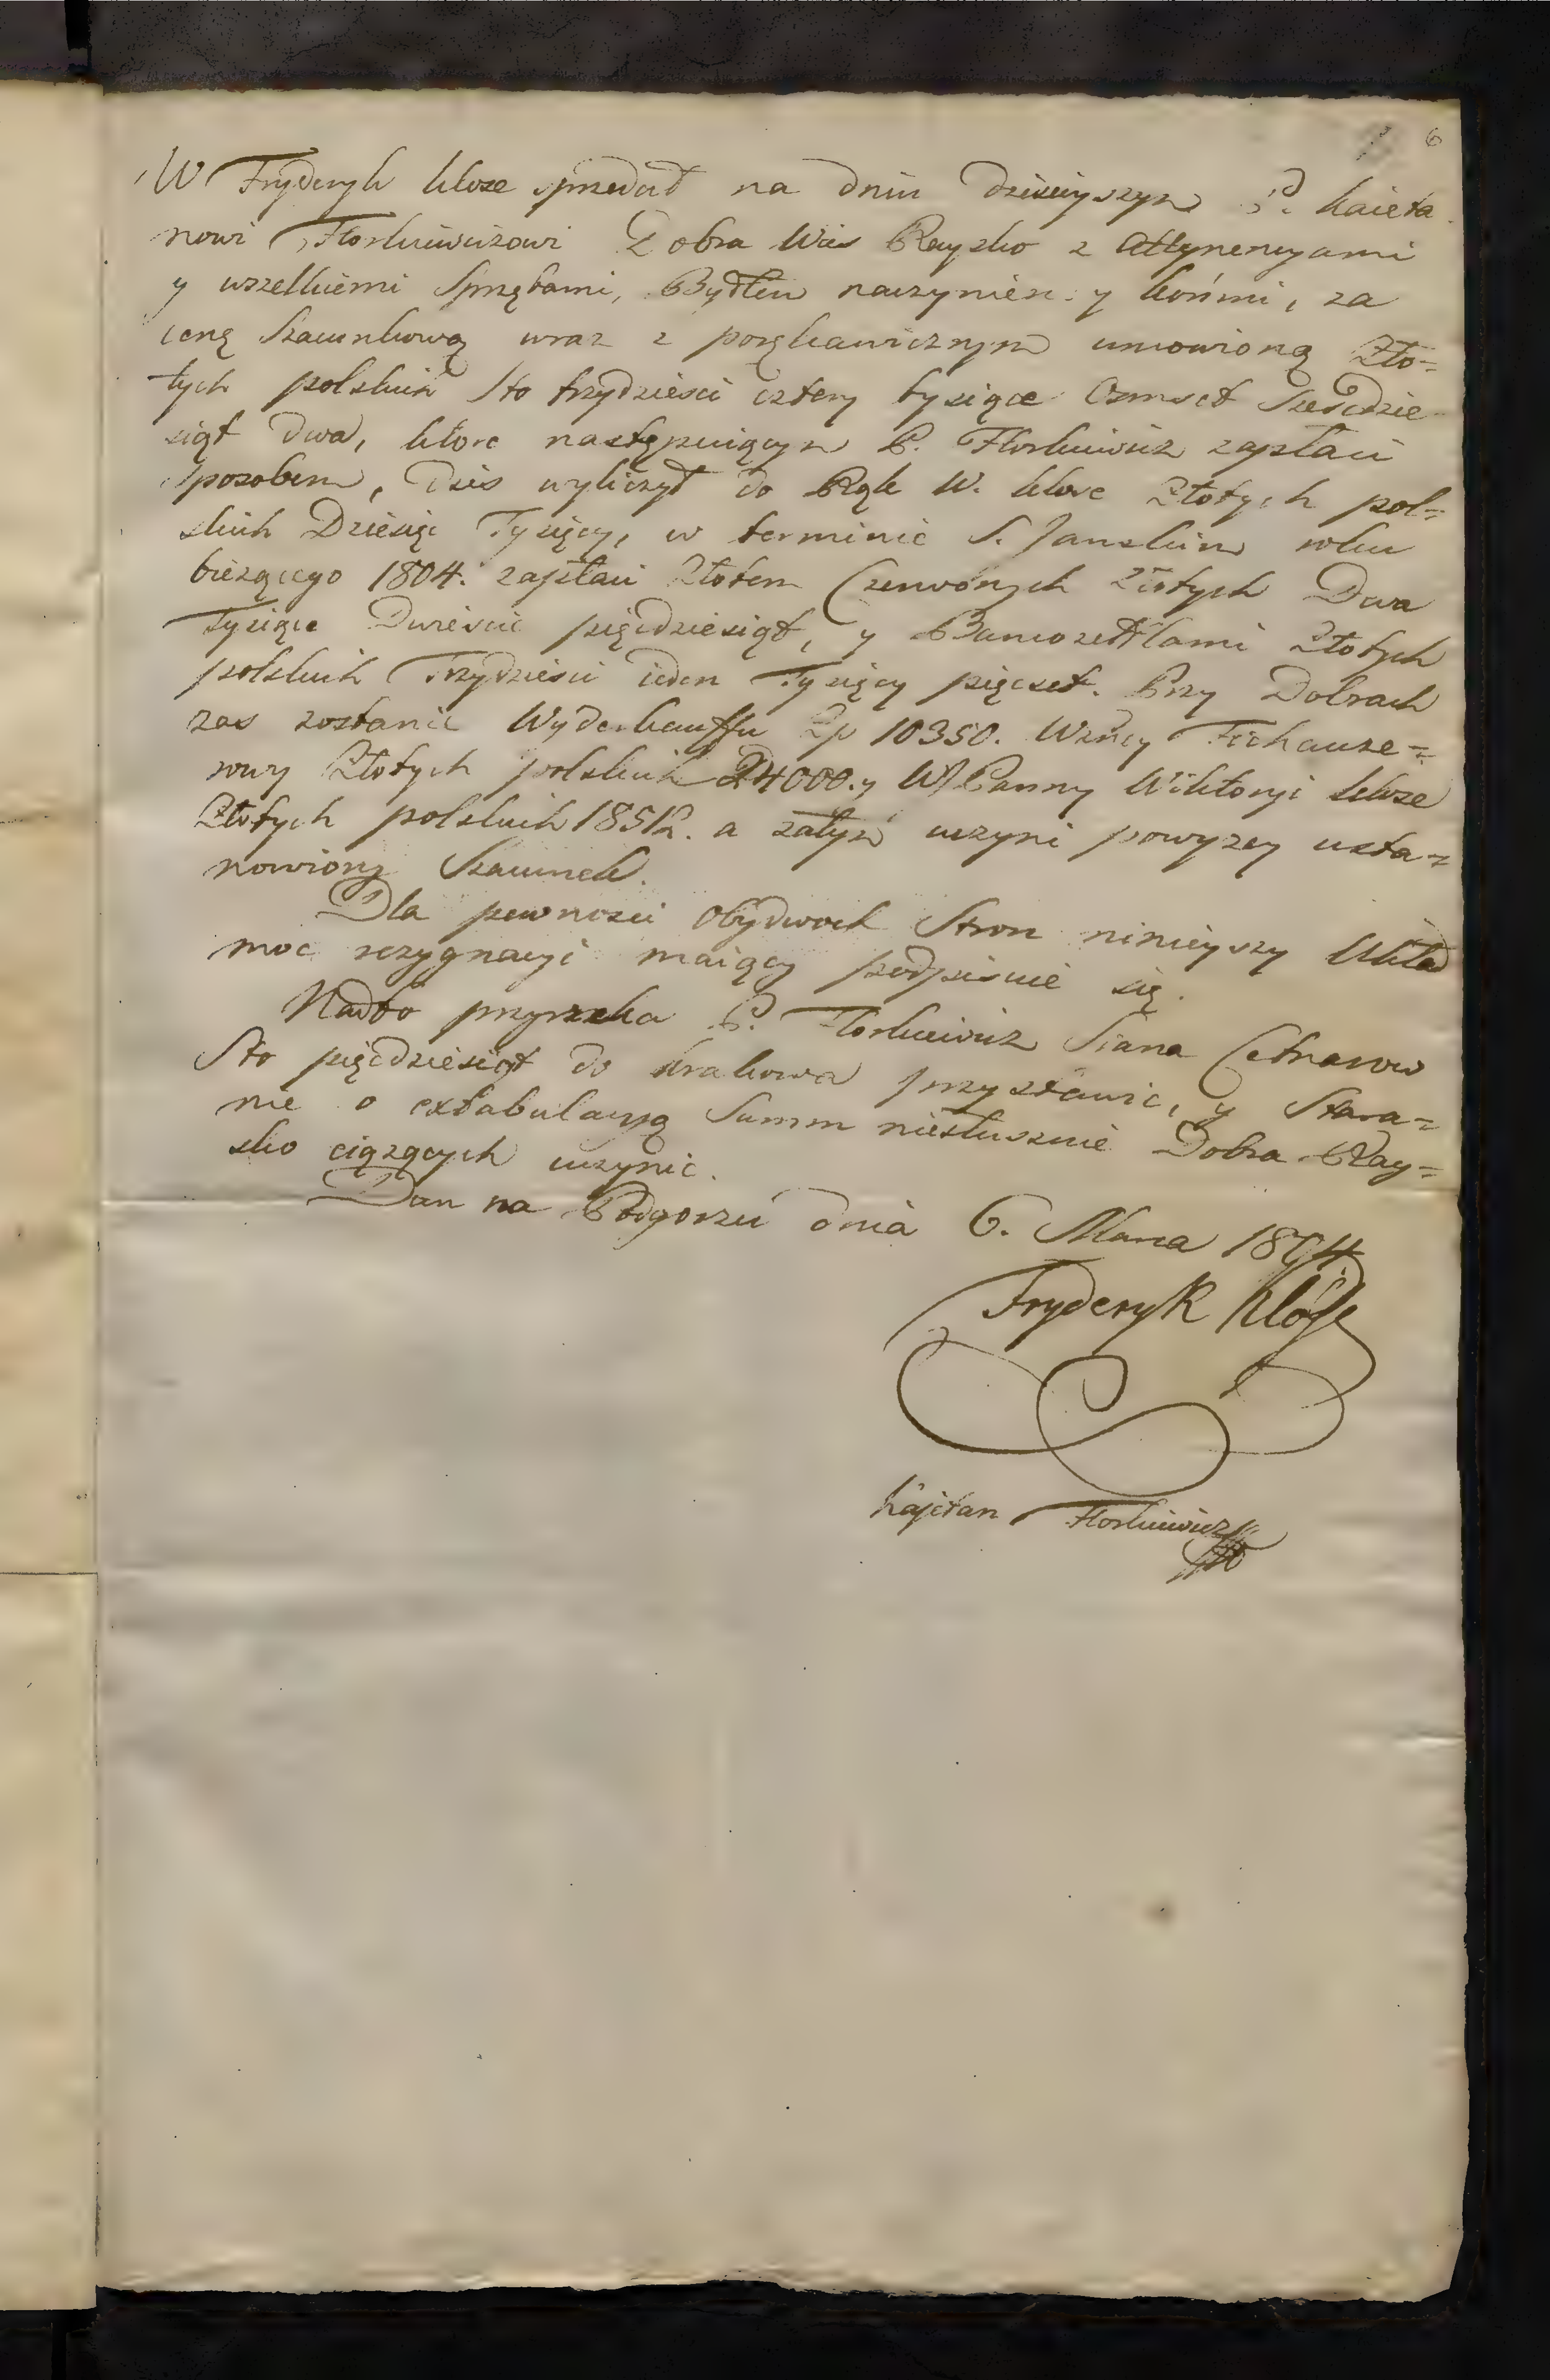 6
W Fryderyk Klose sprzedał na dniu dzisieyszym P. Kaieta
nowi Florkiewiczowi Dobra Wieś Raysko z Attynencyami
y wszelkiemi Sprzętami, Bydłem naczyniem y końmi, za
cenę Szacunkową wraz z porękawicznym umowioną Zło=
tych polskich Sto trzydzieści cztery tysiące Osmset Sześćdzie
siąt dwa, ktore następuiącym P. Florkiewicz zapłaci
sposobem, dziś wyliczył do Rąk W. Klose Złotych pol=
skich Dziesięć Tysięcy, w terminie S. Janskim roku
bieżącego 1804. zapłaci Złotem Czerwonych Złotych Dwa
Tysiące Dwieście pięćdziesiąt, y Bancozettlami Złotych
polskich Trzydzieści ieden Tysięcy pięcset. Przy Dobrach
zas zostanie Wyderkauffu Zp 10350. Wżney Fichauze=
rowy Złotych polskich 24000. y W Panny Wiktoryi Klose
Złotych polskich 18512. a zatym uczyni powyzey usta=
nowiony Szacunek.
Dla pewnosci Obydwoch Stron ninieyszy Układ
moc rezygnacyi maiący podpisuie się.
Nadto przyrzeka P. Florkiewicz Siana Cetnarow
Sto pięćdziesiąt do Krakowa przystawić, y Stara=
nie o extabulacyą Summ niesłusznie Dobra Ray=
sko ciążących uczynic.
Dan na Podgorzu dnia 6. Marca 1804
Fryderyk Klóse
Kajetan Florkiewicz